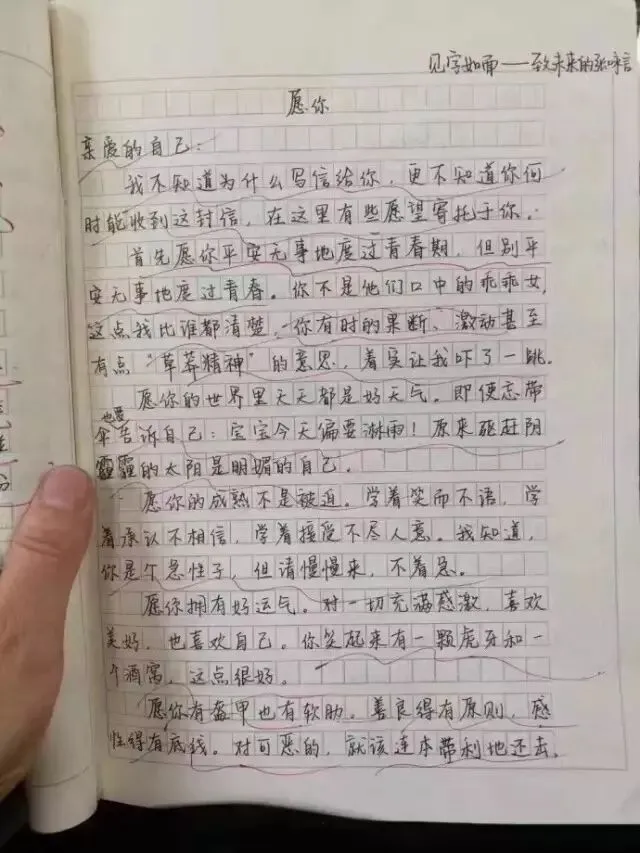 见字如面——致未来的张咏言
愿你
亲爱的自己：
我不知道为什么写信给你，更不知道你何
时能收到这封信，在这里有些愿望寄托于你。
首先愿你平安无事地度过青春期，但别平
安无事地度过青春。你不是他们口中的乖乖女，
这点我比谁都清楚，你有时的果断、激动甚至
有点“草莽精神”的意思，着实让我吓了一跳。
愿你的世界里天天都是好天气。即使忘带
伞也要告诉自己：宝宝今天偏要淋雨！原来驱赶阴
霾的太阳是明媚的自己。
愿你的成熟不是被迫。学着笑而不语，学
着承认不相信，学着接受不尽人意。我知道，
你是个急性子，但请慢慢来，不着急。
愿你拥有好运气。对一切充满感激，喜欢
美好，也喜欢自己。你笑起来有一颗虎牙和一
个酒窝，这点很好。
愿你有盔甲也有软肋。善良得有原则，感
性得有底线。对可恶的，就该连本带利地还去，